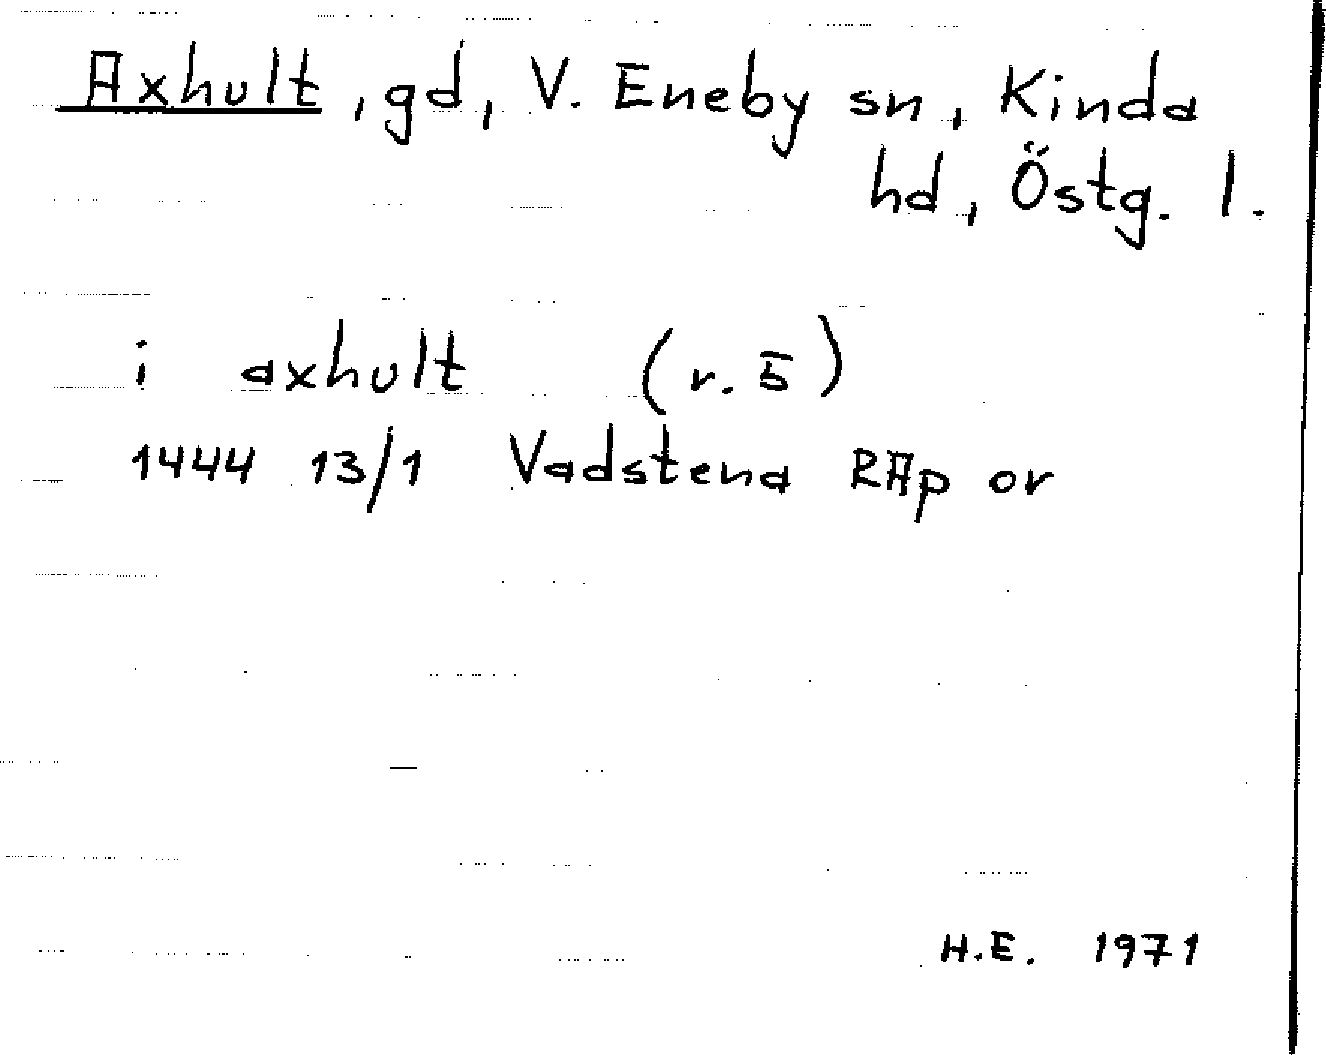 Axhult, gd, V. Eneby sn, Kinda
hd, Östg. l.
i axhult (r. 5)
1444 13/1 Vadstena RAp or
H.E. 1971